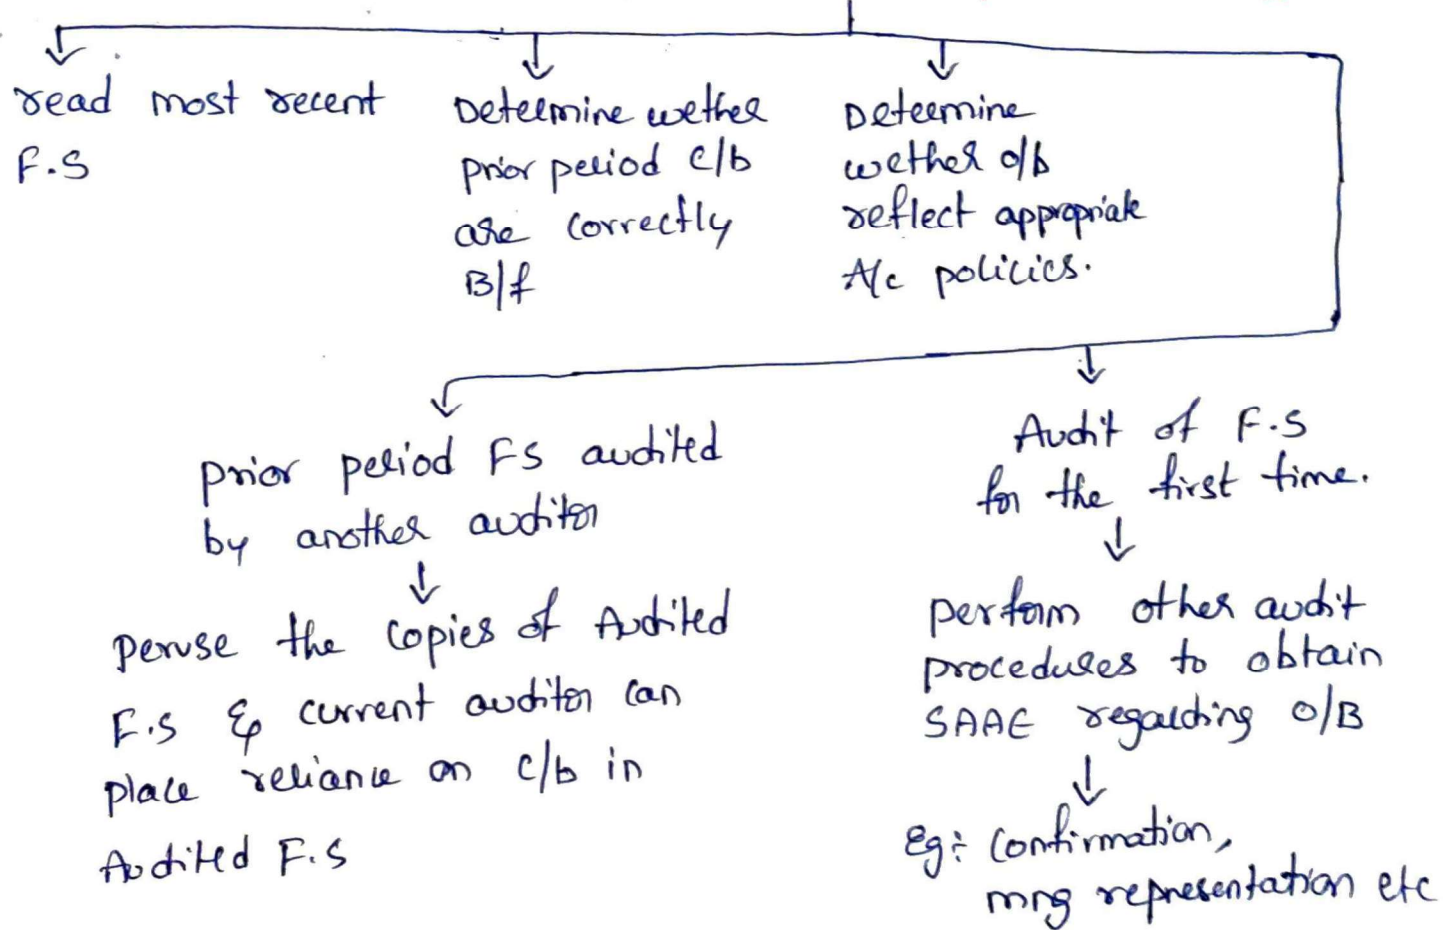 read most recent
F.S
Determine wether
prior period c/b
are correctly
B/f
Determine
wether o/b
reflect appropriate
A/c policies.
prior period FS audited
by another auditor
peruse the copies of Audited
F.S & current auditor can
place reliance on c/b in
Audited F.S
Audit of F.S
for the first time.
perform other audit
procedures to obtain
SAAE regarding O/B
Eg: Confirmation,
mng representation etc